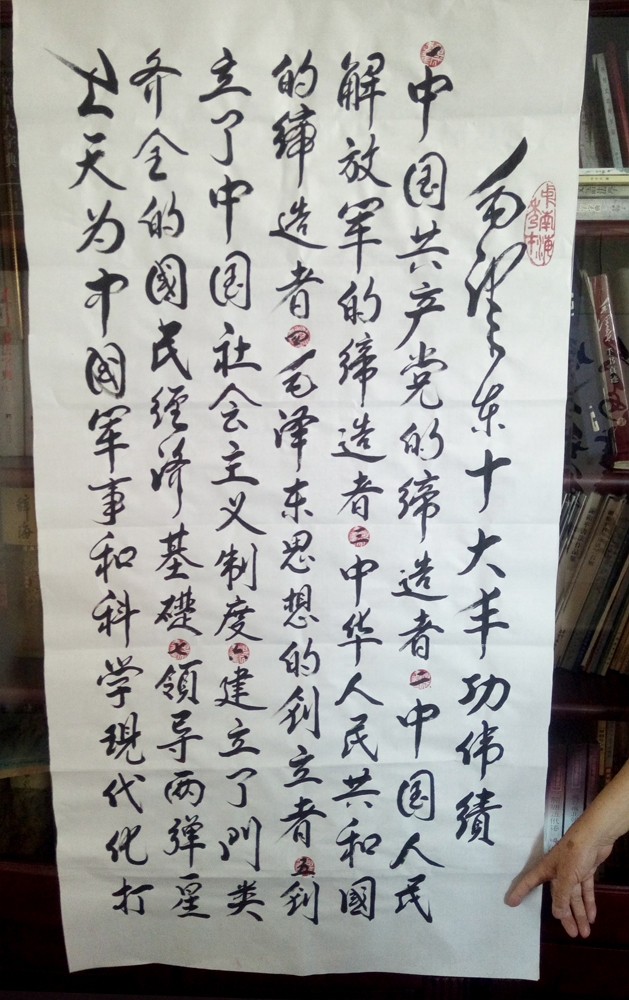 毛澤东十大丰功伟绩
一中国共产党的缔造者二中国人民
解放军的缔造者三中华人民共和國
的缔造者四毛泽东思想的创立者五创
立了中国社会主义制度六建立了门类
齐全的國民经济基礎七領导两弹星
上天为中国军事和科学现代化打